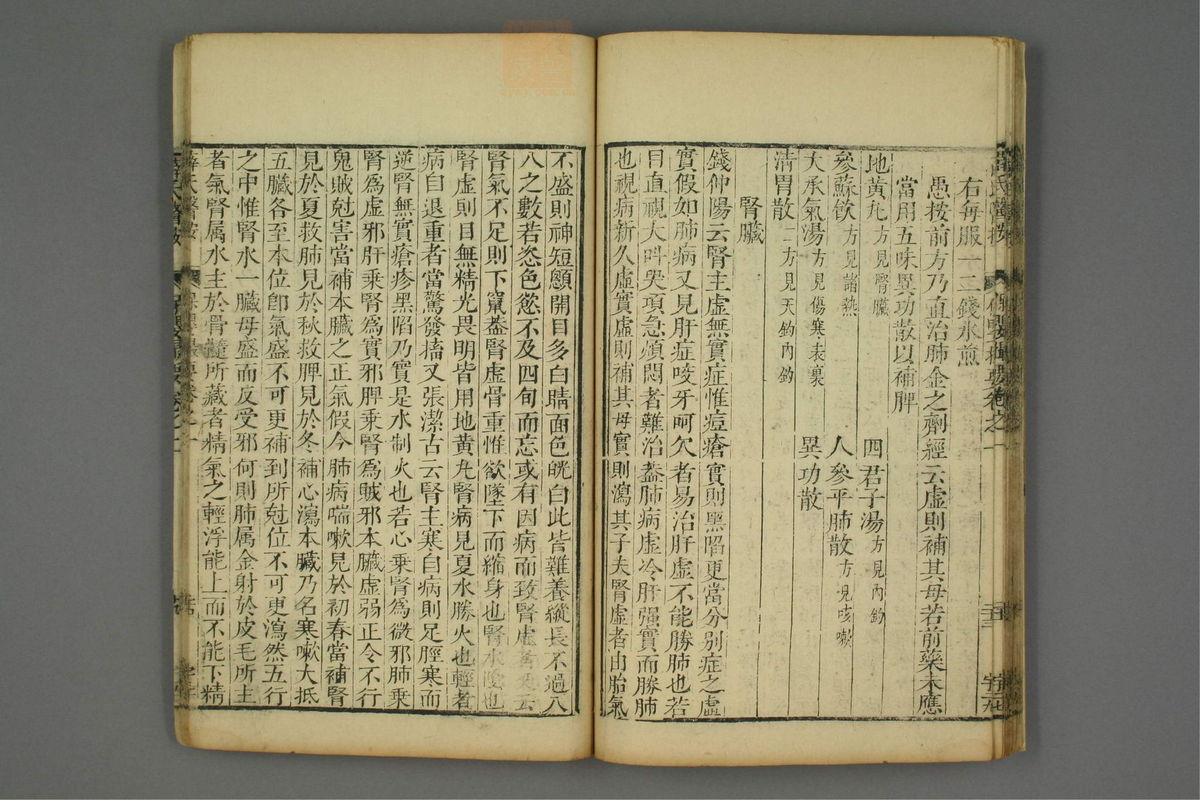 右每服一二錢水煎
愚按前方乃直治肺金之劑經云虛則補其母若前藥未應
當用五味異功散以補脾
地黄丸方見腎臟 四君子湯方見內釣
參蘇飲方見諸熱 人參平肺散方見咳嗽
大承氣湯方見傷寒表裏 異功散
清胃散二方見天釣內釣
腎臟
錢仲陽云腎主虛無實症惟痘瘡實則黑陷更當分别症之虛
實假如肺病又見肝症咬牙呵欠者易治肝虛不能勝肺也若
目直視大呌哭項急煩悶者難治葢肺病虛冷肝强實而勝肺
也視病新久虛實虛則補其母實則瀉其子夫腎虛者由胎氣
不盛則神短顖開目多白睛面色㿠白此皆難養縱長不過八
八之數若恣色慾不及四旬而忘或有因病而致腎虛者又云
腎氣不足則下竄葢腎虛骨重惟欲墜下而縮身也腎水陰也
腎虛則目無精光畏明皆用地黄丸腎病見夏水勝火也輕者
病自退重者當驚發搐又張潔古云腎主寒自病則足脛寒而
逆腎無實瘡疹黑陷乃實是水制火也若心乘腎爲微邪肺乘
腎爲虛邪肝乘腎爲實邪脾乘腎爲賊邪本臟虛弱正令不行
鬼賊尅害當補本臟之正氣假令肺病喘嗽見於初春當補腎
見於夏救肺見於秋救脾見於冬補心瀉本臟乃名寒嗽大抵
五臟各至本位卽氣盛不可更補到所尅位不可更瀉然五行
之中惟腎水一臟母盛而反受邪何則肺属金射於皮毛所主
者氣腎属水主於骨髓所藏者精氣之輕浮能上而不能下精